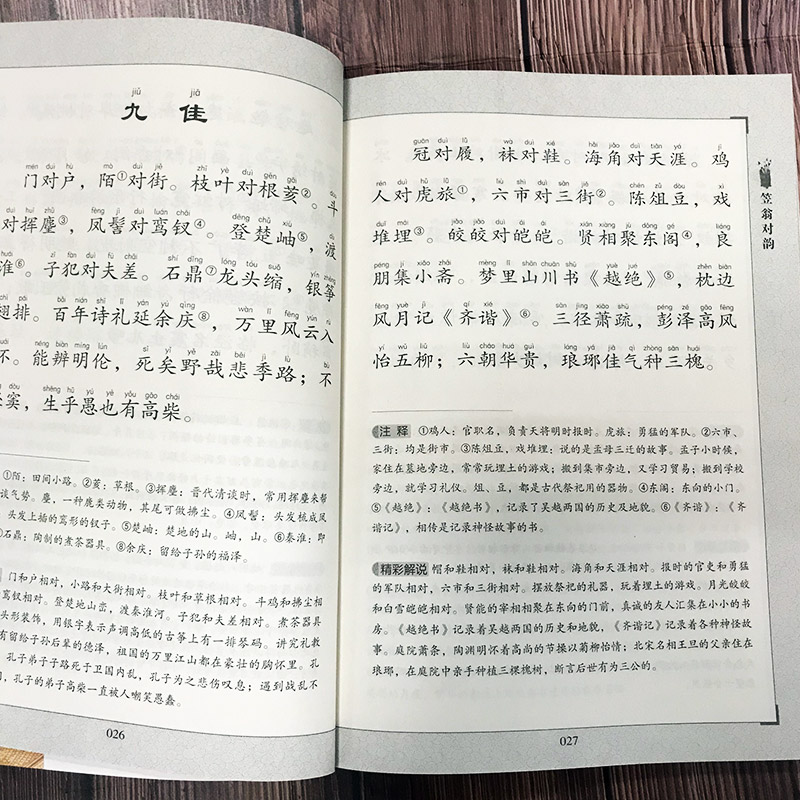 jiǔ jiā
九 佳
mén duì hù mò duì jiē zhī yè duì gēn gāi
门对户，陌①对街。枝叶对根荄②。斗
duì huī zhǔ fèng jì duì luán chāi dēng chǔ xiù dù
对挥麈③，凤髻对鸾钗④。登楚岫⑤，渡
zǐ fàn duì fū chāi shí dǐng lóng tóu suō yín zhēng
淮⑥。子犯对夫差。石鼎⑦龙头缩，银筝
bǎi nián shī lǐ yán yú qìng wàn lǐ fēng yún rù
翅排。百年诗礼延余庆⑧，万里风云入
néng biàn míng lún sǐ yǐ yě zāi bēi jì lù bù
不。能辨明伦，死矣野哉悲季路；不
dòu shēng hū yú yě yǒu gāo chái
窦，生乎愚也有高柴。
①陌：田间小路。②荄：草根。③挥麈：晋代清谈时，常用挥麈来帮
谈气势。麈，一种鹿类动物，其尾可做拂尘。④凤髻：头发梳成凤
头发上插的鸾形的钗子。⑤楚岫：楚地的山。岫，山。⑥秦淮：即
⑦石鼎：陶制的煮茶器具。⑧余庆：留给子孙的福泽。
门和户相对，小路和大街相对。枝叶和草根相对。斗鸡和拂尘相
钗相对。登楚地山峦，渡秦淮河。子犯和夫差相对。煮茶器具
头形装饰，用银字表示声调高低的古筝上有一排琴码。讲究礼教
有留给子孙后辈的德泽，祖国的万里江山都在豪壮的胸怀里。孔
孔子弟子子路死于卫国内乱，孔子为之悲伤叹息；遇到战乱不
孔子的弟子高柴一直被人嘲笑愚蠢。
026
guān duì lǚ wà duì xié hǎi jiǎo duì tiān yá jī
冠对履，袜对鞋。海角对天涯。鸡
rén duì hǔ lǚ liù shì duì sān jiē chén zǔ dòu xì
人对虎旅①，六市对三街②。陈俎豆，戏
duī mái jiǎo jiǎo duì ái ái xián xiàng jù dōng gé liáng
堆埋③。皎皎对皑皑。贤相聚东阁④，良
péng jí xiǎo zhāi mèng lǐ shān chuān shū yuè jué zhěn biān
朋集小斋。梦里山川书《越绝》⑤，枕边
fēng yuè jì qí xié sān jìng xiāo shū péng zé gāo fēng
风月记《齐谐》⑥。三径萧疏，彭泽高风
yí wǔ liǔ liù cháo huá guì láng yá jiā qì zhòng sān huái
怡五柳；六朝华贵，琅琊佳气种三槐。
注 释 ①鸡人：官职名，负责天将明时报时。虎旅：勇猛的军队。②六市、
三街：均是街市。③陈俎豆，戏堆埋：说的是孟母三迁的故事。孟子小时候，
家住在墓地旁边，常常玩埋土的游戏；搬到集市旁边，又学习贸易；搬到学校
旁边，就学习礼仪。俎、豆，都是古代祭祀用的器物。④东阁：东向的小门。
⑤《越绝》：《越绝书》，记录了吴越两国的历史及地貌。⑥《齐谐》：《齐
谐记》，相传是记录神怪故事的书。
精彩解说 帽和鞋相对，袜和鞋相对。海角和天涯相对。报时的官吏和勇猛
的军队相对，六市和三街相对。摆放祭祀的礼器，玩着埋土的游戏。月光皎皎
和白雪皑皑相对。贤能的宰相相聚在东向的门前，真诚的友人汇集在小小的书
房。《越绝书》记录着吴越两国的历史和地貌，《齐谐记》记录着各种神怪故
事。庭院萧条，陶渊明怀着高尚的节操以菊柳怡情；北宋名相王旦的父亲住在
琅琊，在庭院中亲手种植三棵槐树，断言后世有为三公的。
027
笠翁对韵